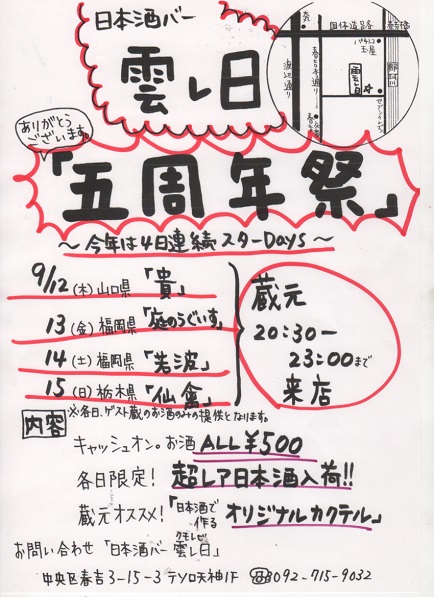 日本酒バー
雲レ日
ありがとう
ございます。
「五周年祭」
～今年は4日連続スターDays～
9/12(木)山口県「貴」
13(金)福岡県「庭のうぐいす」
14(土)福岡県「若波」
15(日)栃木県「仙禽」
蔵元
20:30―
23:00まで
来店
※各日、ゲスト蔵のお酒のみの提供となります。
内容
キャッシュオン。お酒ALL¥500
各日限定！超レア日本酒入荷!!
蔵元オススメ！「日本酒で作るオリジナルカクテル」
お問い合わせ「日本酒バー雲レ日」
クモレビ
中央区春吉3-15-3テソロ天神1F ☎092-715-9032
国体道路
春吉橋
那珂川
渡辺通り
春吉本通り
パチンコ
玉屋
雲レ日
セブンイレブン